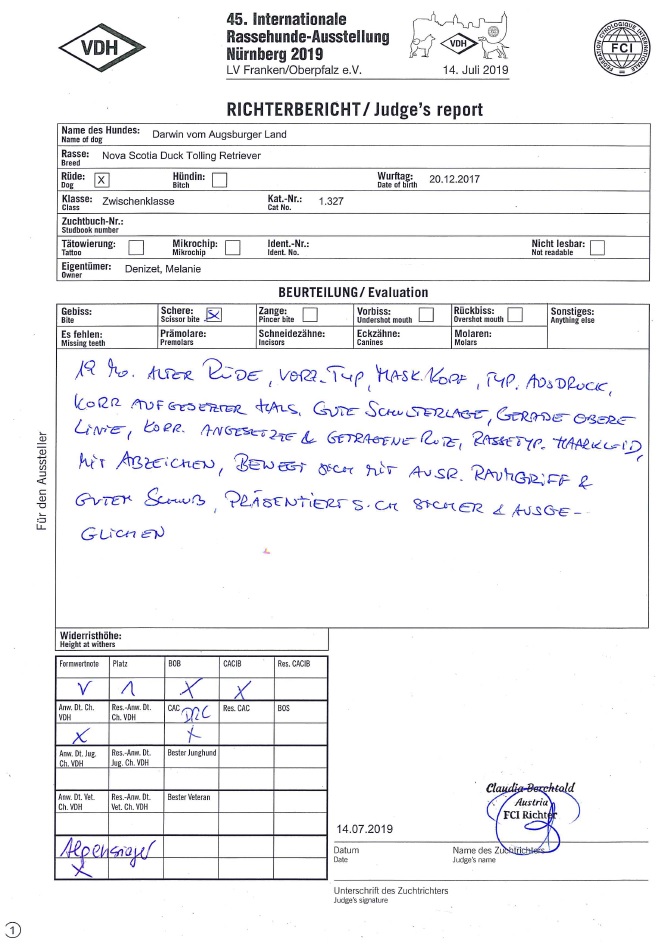 VDH
45. Internationale
Rassehunde-Ausstellung
Nürnberg 2019
LV Franken/Oberpfalz e.V.
VDH
14. Juli 2019
FEDERATION CYNOLOGIQUE INTERNATIONALE
FCI
RICHTERBERICHT / Judge's report
Name des Hundes: Darwin vom Augsburger Land
Name of dog
Rasse: Nova Scotia Duck Tolling Retriever
Breed
Rüde: X Hündin: Wurftag: 20.12.2017
Dog Bitch Date of birth
Klasse: Zwischenklasse Kat.-Nr.: 1.327
Class Cat No.
Zuchtbuch-Nr.:
Studbook number
Tätowierung: Mikrochip: Ident.-Nr.: Nicht lesbar:
Tattoo Mikrochip Ident. No. Not readable
Eigentümer: Denizet, Melanie
Owner
BEURTEILUNG / Evaluation
Gebiss: Schere: X Zange: Vorbiss: Rückbiss: Sonstiges:
Bite Scissor bite Pincer bite Undershot mouth Overshot mouth Anything else
Es fehlen: Prämolare: Schneidezähne: Eckzähne: Molaren:
Missing teeth Premolars Incisors Canines Molars
19 Mo. ALTER RÜDE, VORZ. TYP, MASK. KOPF, TYP. AUSDRUCK,
KORR AUFGESETZTER HALS. GUTE SCHULTERLAGE, GERADE OBERE
LINIE, KORR. ANGESETZTE & GETRAGENE RUTE, RASSETYP. HAARKLEID,
MIT ABZEICHEN, BEWEGT SICH MIT AUSR. RAUMGRIFF &
GUTEM SCHUB, PRÄSENTIERT SICH SICHER & AUSGE-
GLICHEN
Für den Aussteller
Widerristhöhe:
Height at withers
Formwertnote Platz BOB CACIB Res. CACIB
V 1 X X
Anw. Dt. Ch. VDH Res.-Anw. Dt. Ch. VDH CAC DRC Res. CAC BOS
X X
Anw. Dt. Jug. Ch. VDH Res.-Anw. Dt. Jug. Ch. VDH Bester Junghund
Anw. Dt. Vet. Ch. VDH Res.-Anw. Dt. Vet. Ch. VDH Bester Veteran
Alpensieger
X
Claudia Berchtold
Austria
FCI Richter
14.07.2019
Datum Name des Zuchtrichters
Date Judge's name
Unterschrift des Zuchtrichters
Judge's signature
1